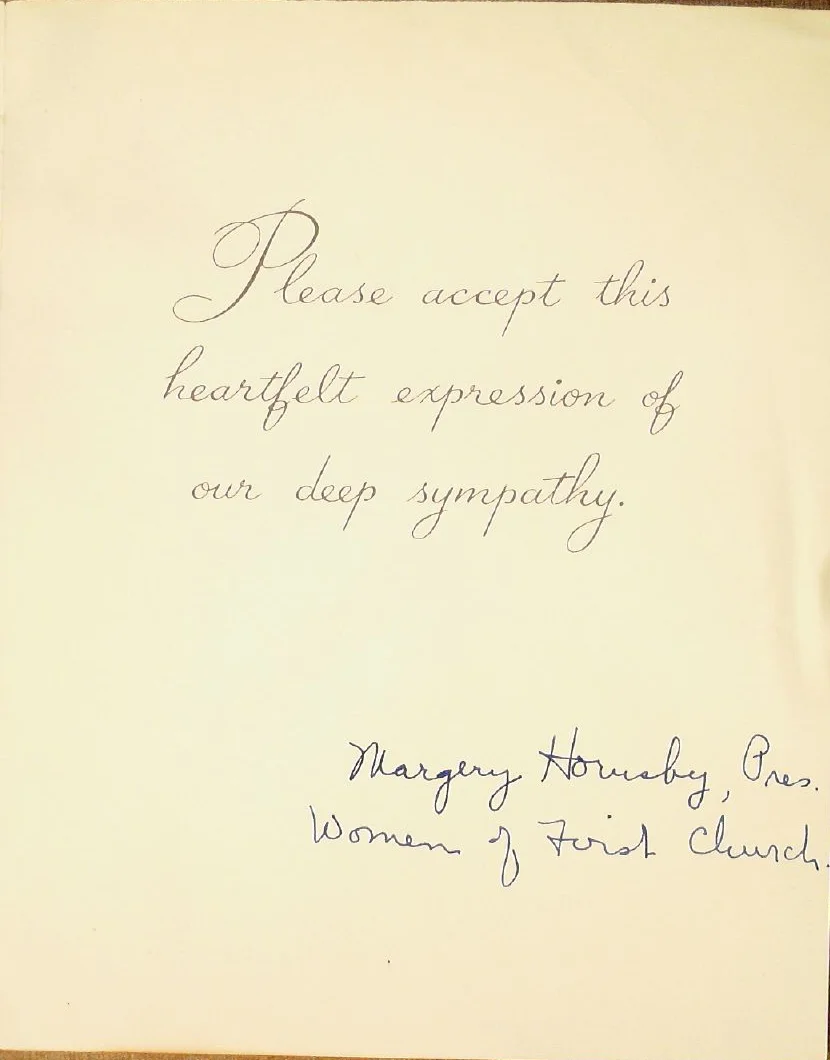 Please accept this
heartfelt expression of
our deep sympathy.
Margery Hornsby, Pres.
Women of First Church.